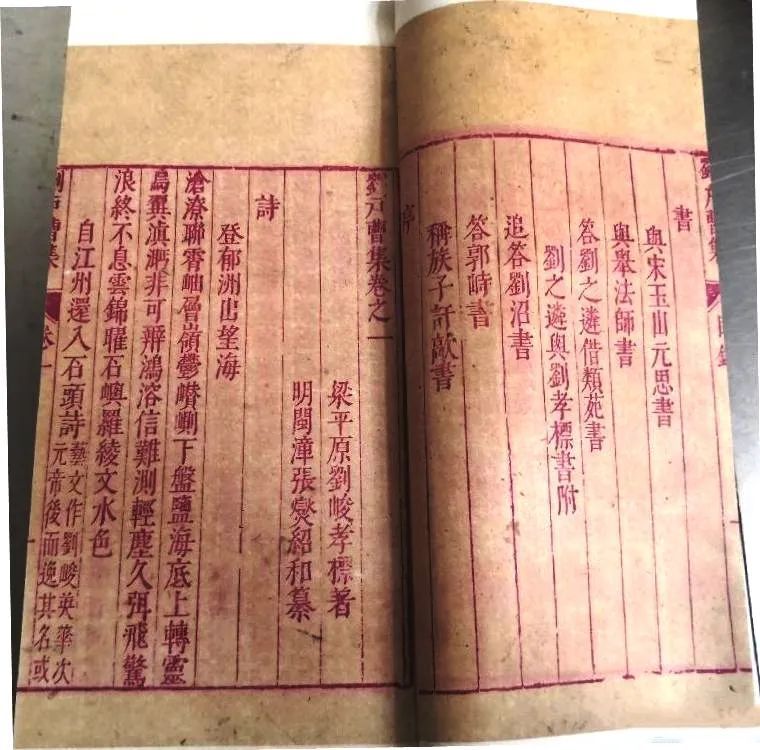 書
與宋玉山元思書
與舉法師書
答劉之遴借類苑書
劉之遴與劉孝標書附
追答劉沼書
答郭峙書
序
稱族子訏歊書
劉戶曹集卷之一
梁平原劉峻孝標著
明閩漳張燮紹和纂
詩
登郁洲山望海
滄潦聯霄岫層嶺鬱巑崱下盤鹽海底上轉靈
烏翼滇洏非可辨鴻溶信難測輕塵久弭飛驚
浪終不息雲錦曜石嶼羅綾文水色
自江州還入石頭詩
藝文作劉峻英華次
元帝後而逸其名或